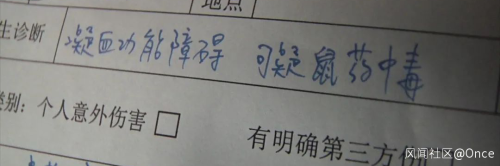 地点
生诊断 凝血功能障碍 可疑鼠药中毒
类别：个人意外伤害 □ 有明确第三方
风闻社区@Once